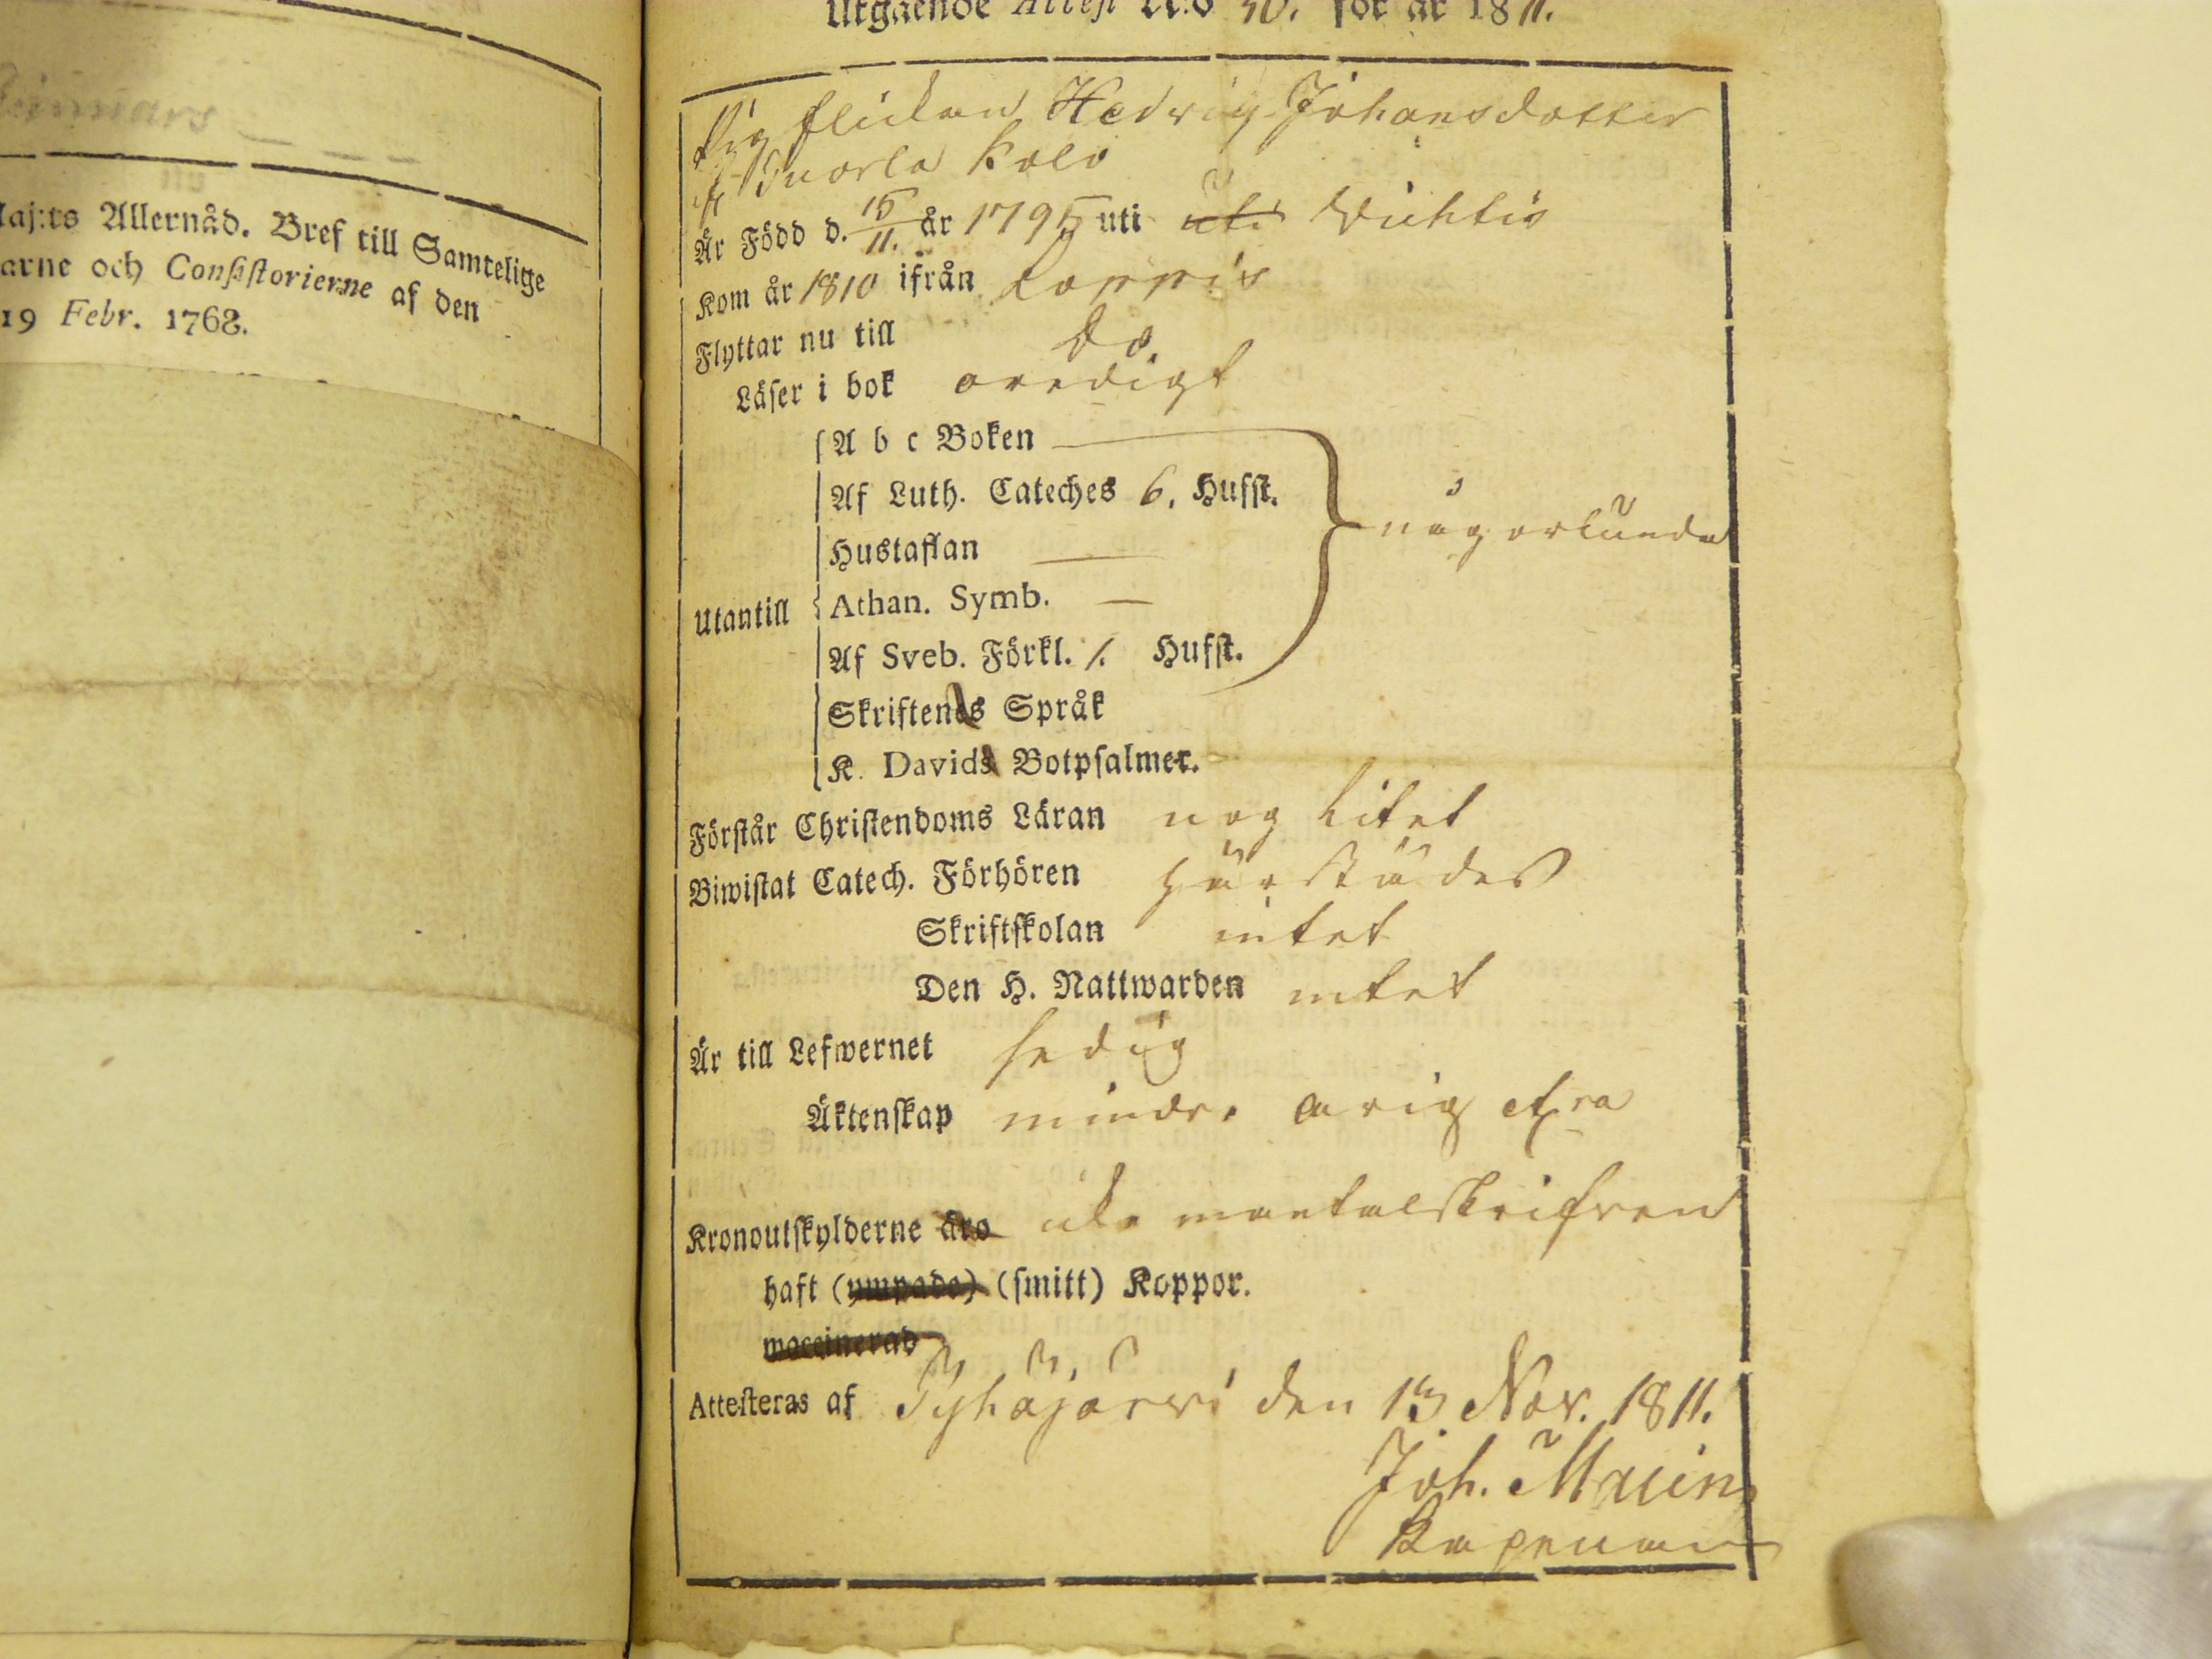 laj:ts Allernåd. Bref till Samtelige
arne och Consistorierne af den
19 Febr. 1768.
Utgående Attest N:o 50. för år 1811.
Pig flickan Hedvig Johansdotter
fr Suorla
Är Född d. 15/11. år 1795 uti uti Wichtis
Kom år 1810 ifrån Loppis
Flyttar nu till do
Läser i bok oredigt
A b c Boken —
Af Luth. Cateches 6. Hufst.
någorlunda
Hustaflan —
Utantill Athan. Symb. —
Af Sveb. Förkl. /. Hufst.
Skriftenes Språk
K. Davids Botpsalmer.
Förstår Christendoms Läran nog litet
Biwistat Catech. Förhören härstädes
Skriftskolan intet
Den H. Nattwarden intet
Är till Lefwernet sedig
Äktenskap mindre årig
Kronoutskylderne äro icke mantalskrifven
haft (ympade) (smitt) Koppor.
waccinerad
Attesteras af Pyhäjärvi den 13 Nov. 1811.
Joh. Malin
Kapellan